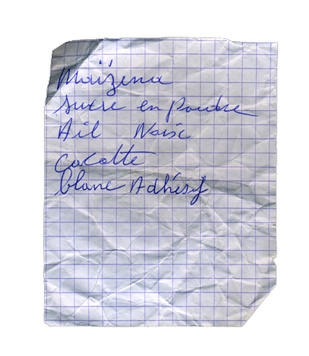 Maïzena
sucre en poudre
Ail Noix
Cocotte
blanc Adhésif